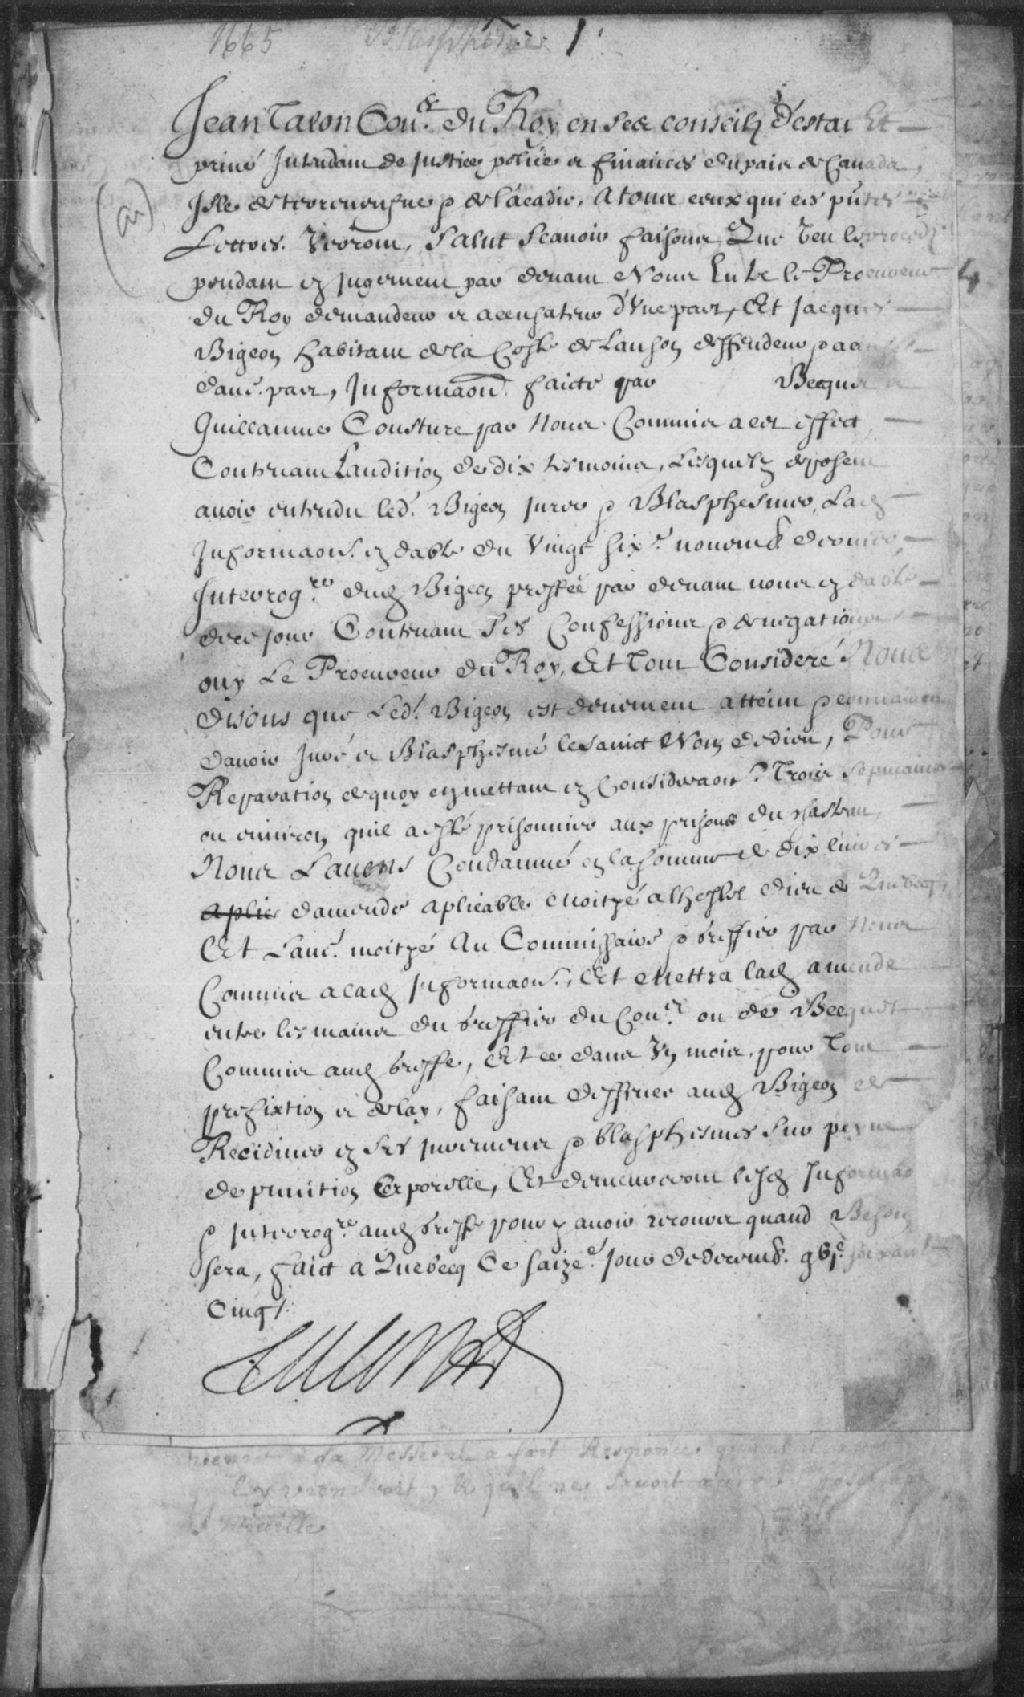 1665 Blasphême 1
Jean Talon Con.er du Roy en ses conseilz d'estat Et
privé Intendant de Justice police et finances du pais de Canada,
Isle de terreneufve & de l'acadie. A tous ceux qui ces p̃ntes
Lettres. Verront, Salut Scavoir faisons, Que Veu le procedz
pendant en Jugement par devant Nous Entre le Procureur
du Roy demandeur et accusateur d'Une part, Et Jacques
Bigeon habitant de la Coste de Lauson deffendeur & accusé
d'auc. part, Informaon. faicte par Becquet et
Guillaume Cousture par Nous Commis a cet effect
Contenant L'audition de dix tesmoins, Lesquelz deposent
avoir entendu led. Bigeon jurer & Blasphesmer, Lad.
Informaon. en datte du Vingt six.e novemb. dernier,
Interrog.re dud. Bigeon presté par devant nous en datte
de ce jour Contenant Ses Confessions & denegations
ouy Le Procureur du Roy, Et Tout Consideré Nous
disons que Led. Bigeon est deuement atteint & convaincu
d'avoir Juré et Blasphesmé le sainct Nom de dieu, Pour
Reparation de quoy en mettant en Consideraon. Trois sepmaines
ou environ qu'il a esté prisonnier aux prisons du chasteau,
Nous L'avons Condamné en la somme de dix livres
aplic d'amende aplicable moityé a l'hostel dieu de Quebecq,
Et L'auc. moityé Au Commissaire & Greffier par Nous
Commis a lad. Informaon., Et mettra lad. amende
entre les mains du Greffier du Con.el ou de Becquet
Commis aud. Greffe, Et ce dans Un mois pour Tout
prefixtion et delay, faisant deffences aud. Bigeon de
Recidiver en ses juremens & blasphesmes sur peyne
de punition Corporelle, Et demeureront lesd. Informaõ
& Interrog.re aud. Greffe pour y avoir recours quand Besoin
sera, faict a Quebecq Ce saize.e jour de decemb. gbj.c soixant
Cinq /.
Talon